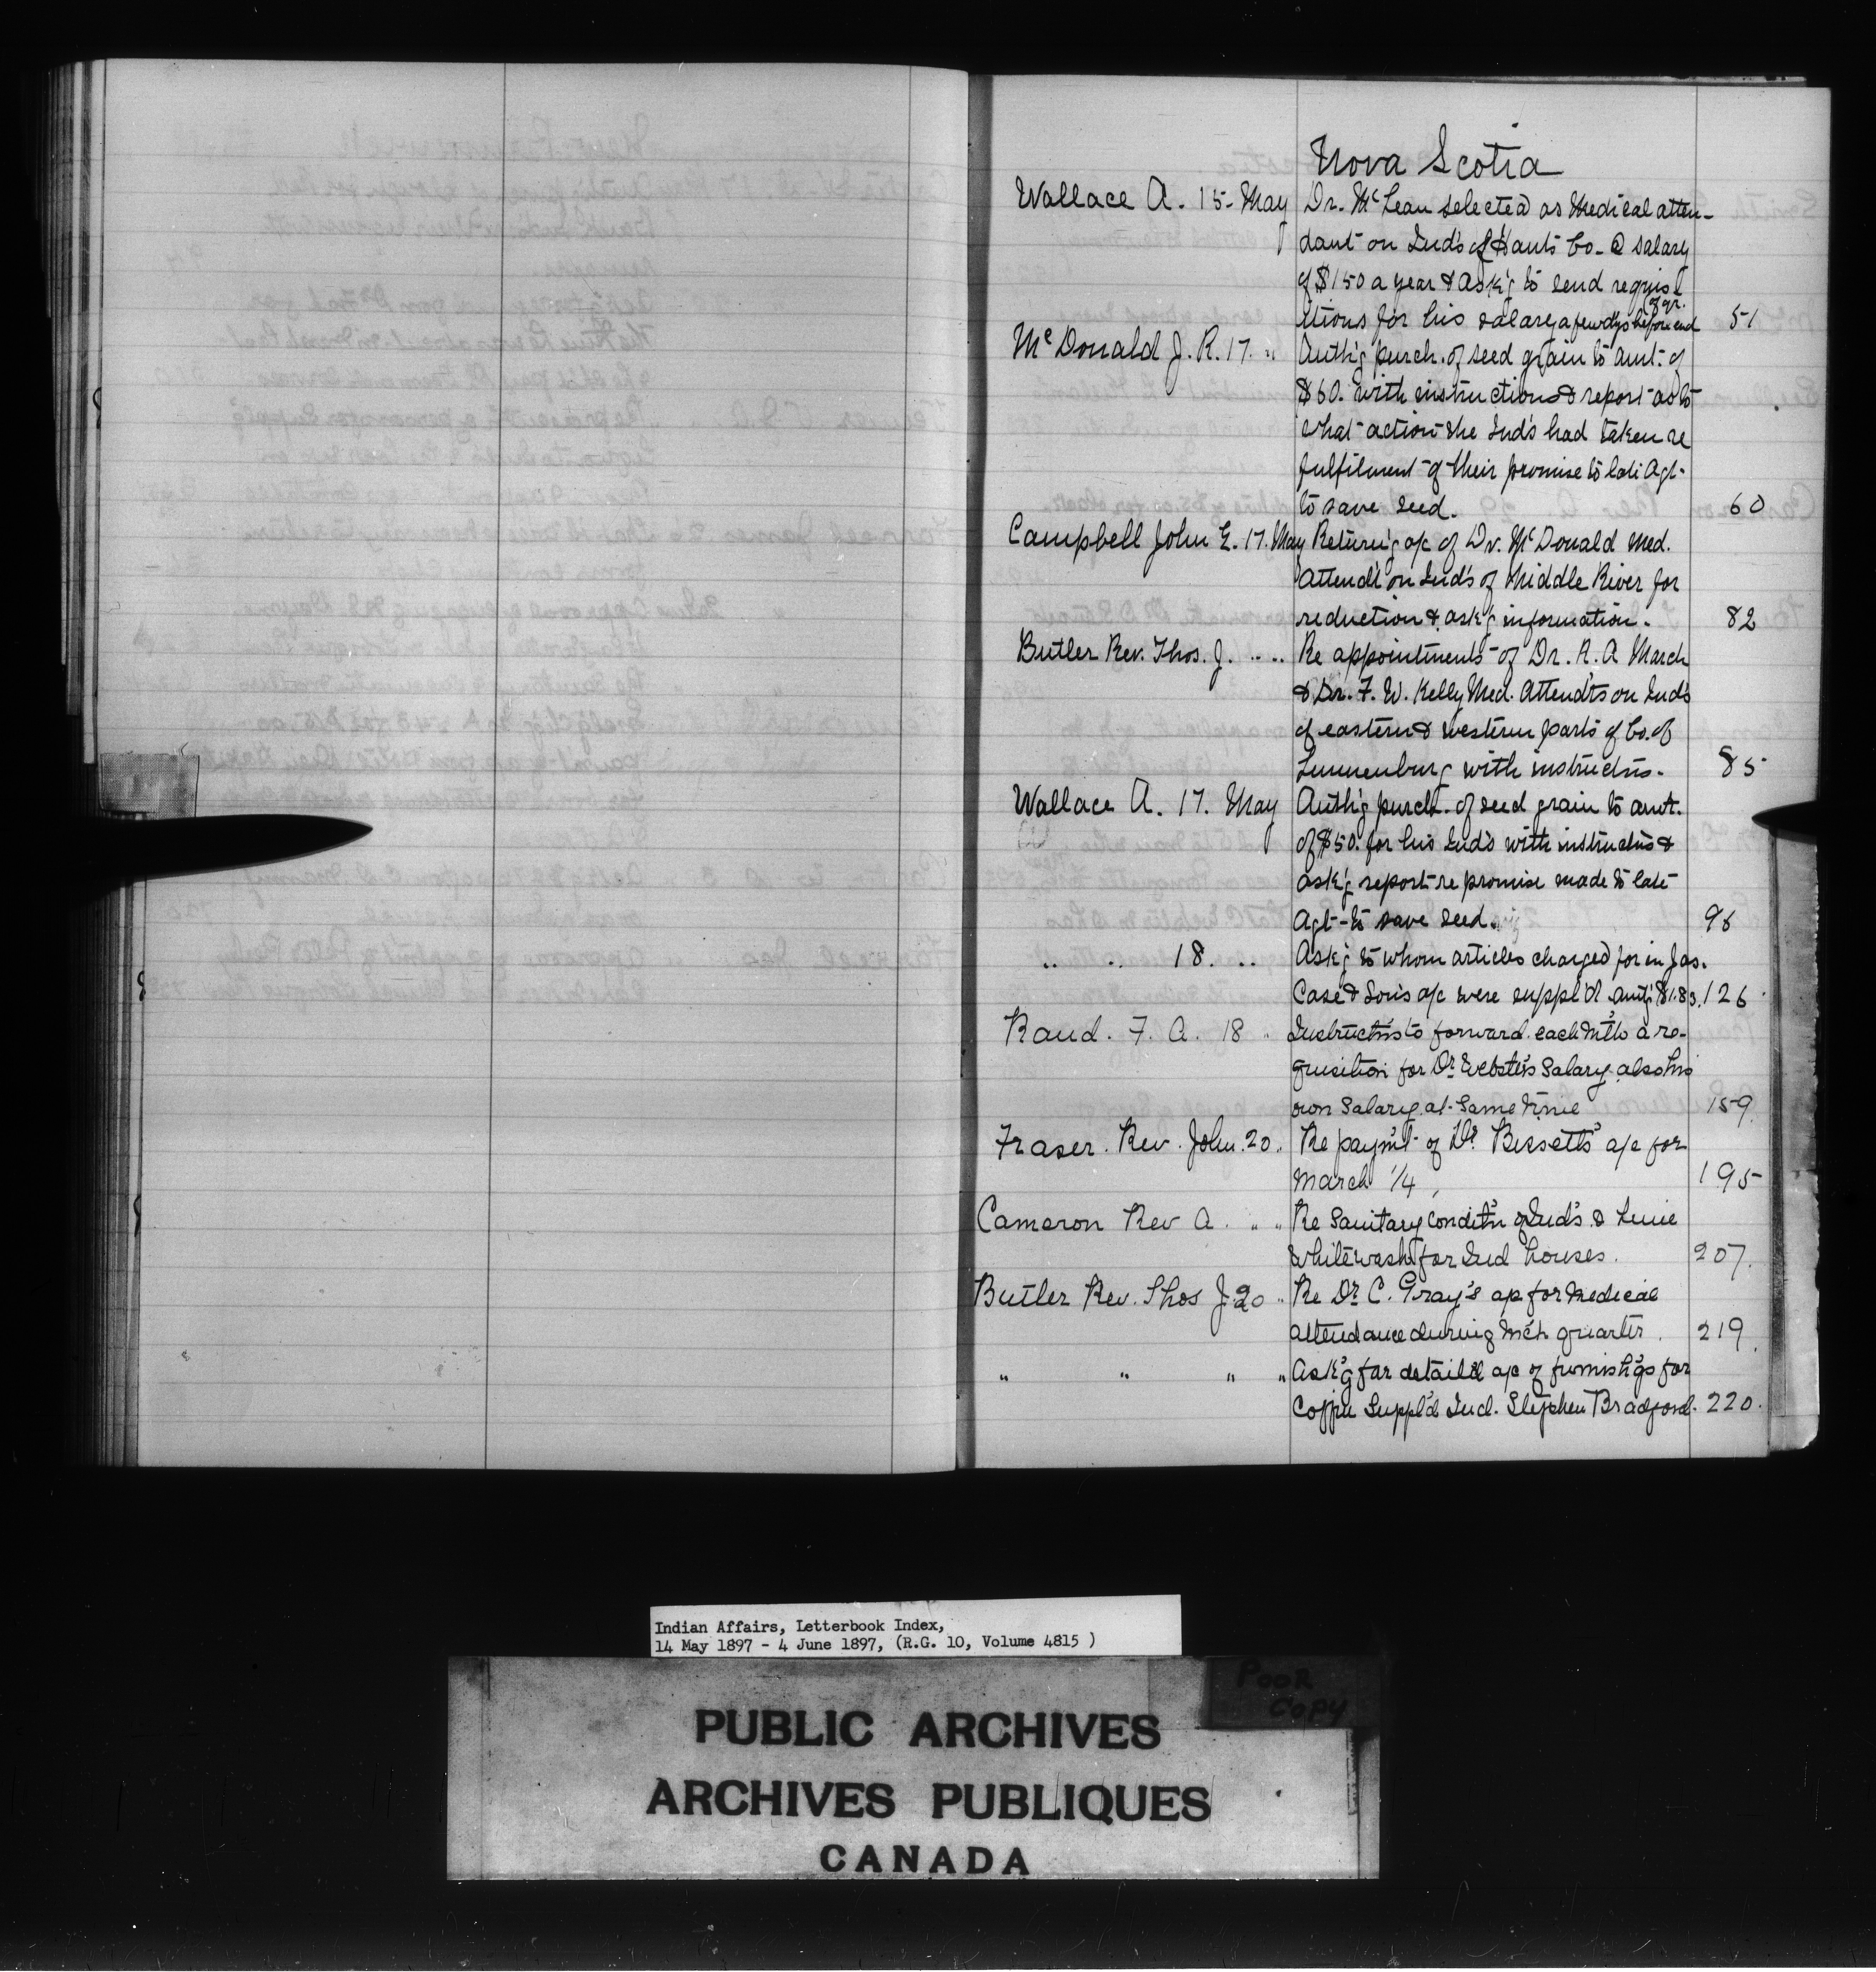 Nova Scotia
Wallace A. 15 May Dr. McLean selected as Medical atten-
dant on Ind's of Hants Co. @ salary
of $150 a year & ask'g to send requis-
itions for his salary a few dys before end of qr. 51
McDonald J. R. 17. " Auth'g purch. of seed grain to amt. of
$60. with instruction & report as to
what action the Ind's had taken re
fulfilment of their promise to late Agt.
to save seed. 60
Campbell John E. 17. May Return'g a/c of Dr. McDonald Med.
Attend't on Ind's of Middle River for
reduction & ask'g information. 82
Butler Rev. Thos. J. " " Re appointments of Dr. H. A March
& Dr. F. W. Kelly Med. Attend'ts on Ind's
of eastern & western parts of Co. of
Lunenburg with instructns. 85
Wallace A. 17. May Auth'g purch. of seed grain to amt.
of $50. for his Ind's with instructns &
ask'g report re promise made to late
Agt. to save seed. 96
" " 18. " Ask'g to whom articles charged for in Jas.
Case & Son's a/c were suppl'd amt'g $1.83. 126
Rand. F. A. 18 " Instruct'ns to forward each Mth a re-
quisition for Dr Webster's Salary also his
own Salary at Same time 159
Fraser. Rev. John. 20. " Re paym't of Dr. Bissett's a/c for
March 1/4, 195
Cameron Rev A. " " Re Sanitary condit'n of Ind's & Lime
Whitewash for Ind houses. 207.
Butler Rev. Thos J. 20 " Re Dr C. Gray's a/c for Medical
attendance during Mch quarter. 219.
" " " " Ask'g for detail'd a/c of furnish'gs for
Coffin Suppl'd Ind. Stephen Bradford. 220.
Indian Affairs, Letterbook Index,
14 May 1897 - 4 June 1897, (R.G. 10, Volume 4815 )
POOR
COPY
PUBLIC ARCHIVES
ARCHIVES PUBLIQUES
CANADA